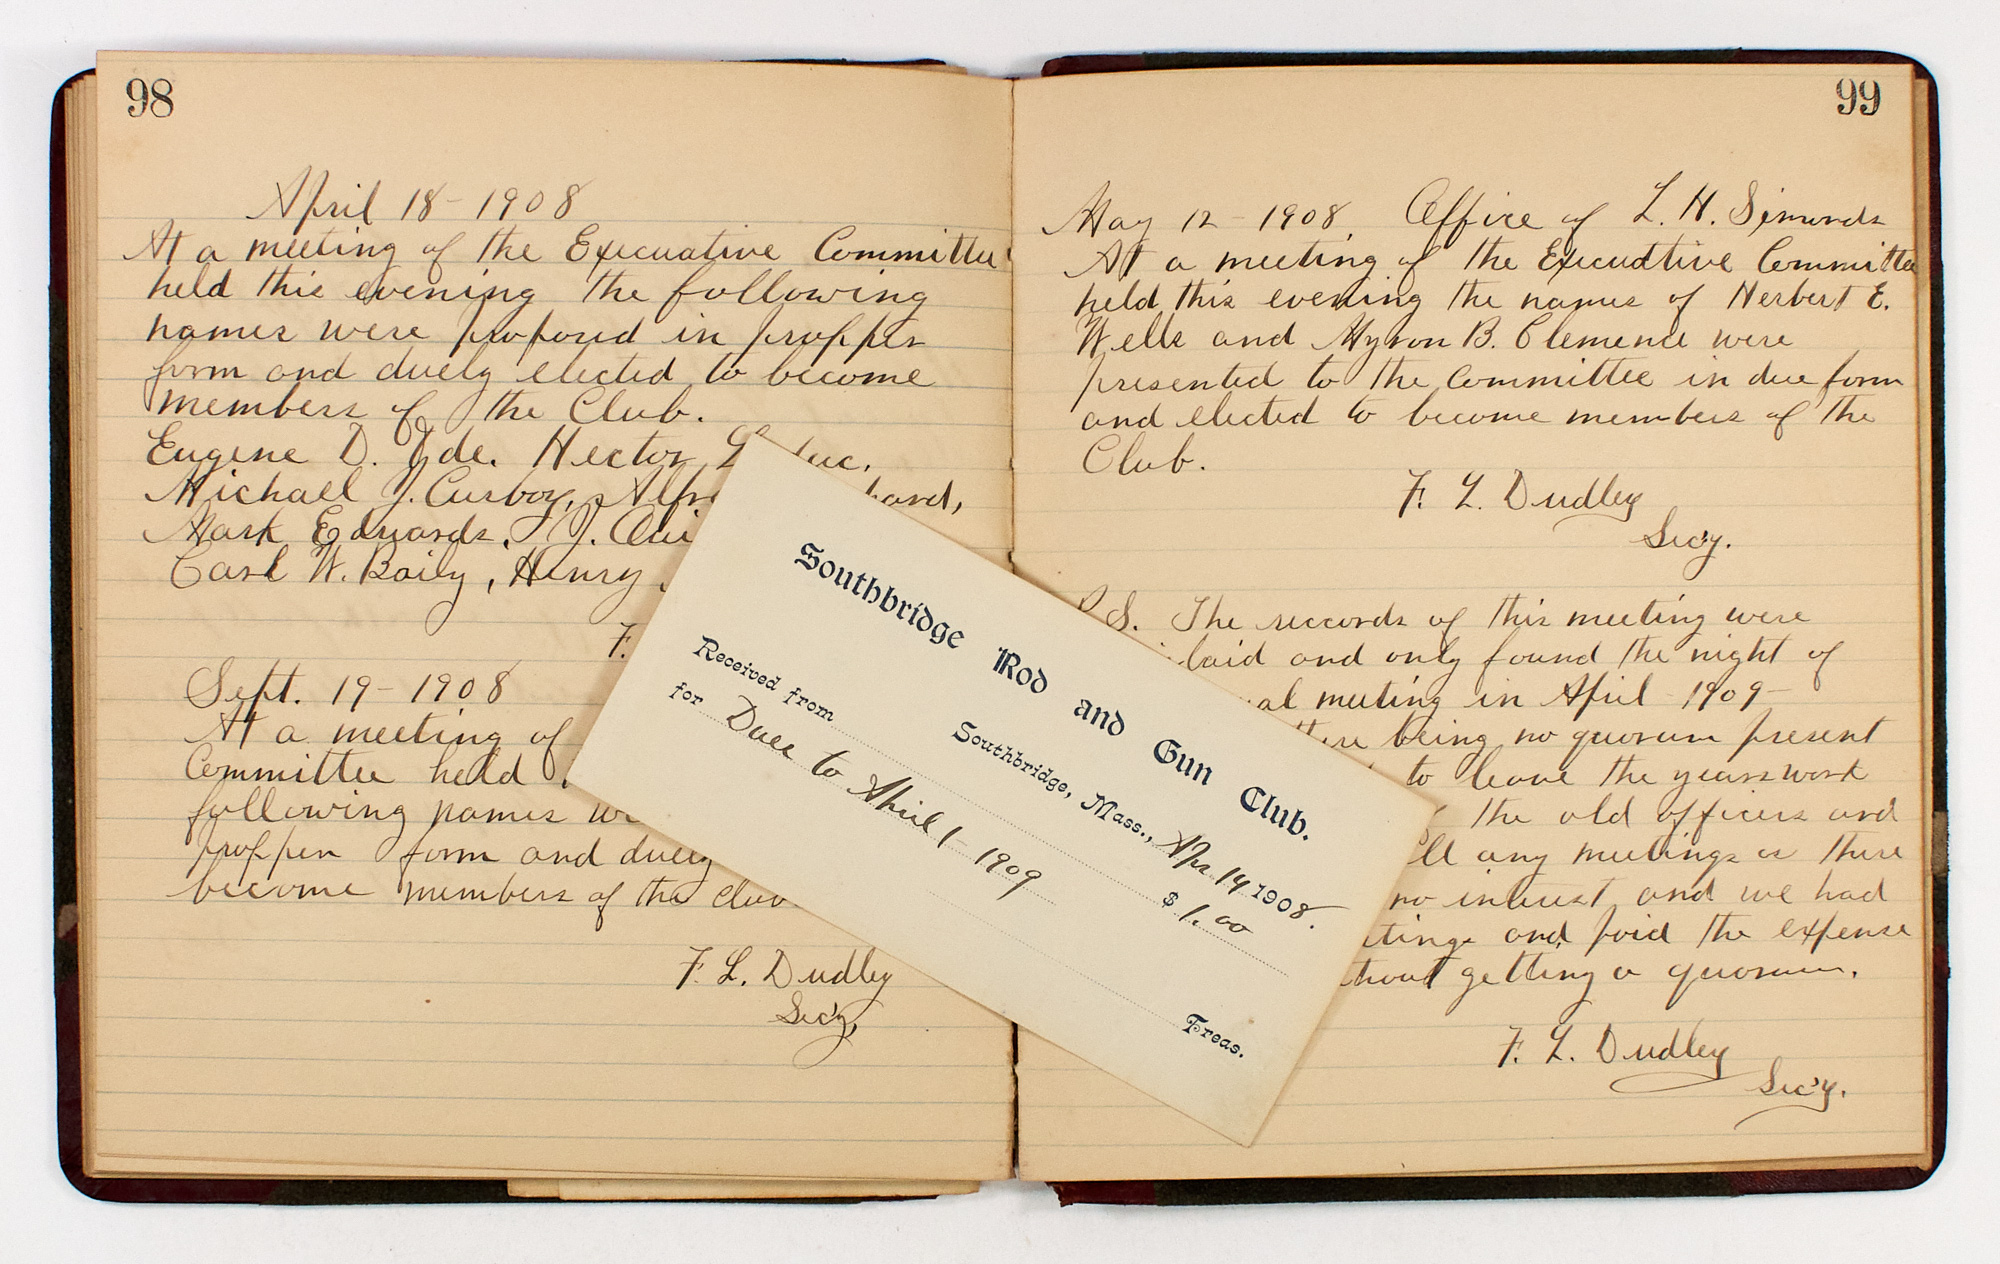 98
April 18 - 1908
At a meeting of the Execuative Committee
held this evening the following
names were proposed in propper
form and duely elected to become
members of the Club.
Eugene D. Hector
Michael J.
Mark Edwards, J.
Carl W. Baily, Henry
F.
Sept. 19 - 1908
At a meeting of
Committee held
following names
propper form and duely
become members of the Club
F. L. Dudley
Sec'y,
Southbridge Rod and Gun Club.
Southbridge, Mass., Apr 14 1908.
Received from $ 1.00
for Dues to April 1 - 1909
Treas.
99
May 12 - 1908. Office of L. H. Simonds
At a meeting of the Execudtive Committee
held this evening the names of Herbert E.
Wells and Myron B. Clemence were
presented to the Committee in due form
and elected to become members of the
Club.
F. L. Dudley
Sec'y.
S. The records of this meeting were
laid and only found the night of
meeting in April - 1909 -
being no quorum present
to leave the years work
the old officers and
any meetings as there
no interest and we had
and paid the expense
getting a quorum.
F. L. Dudley
Sec'y.